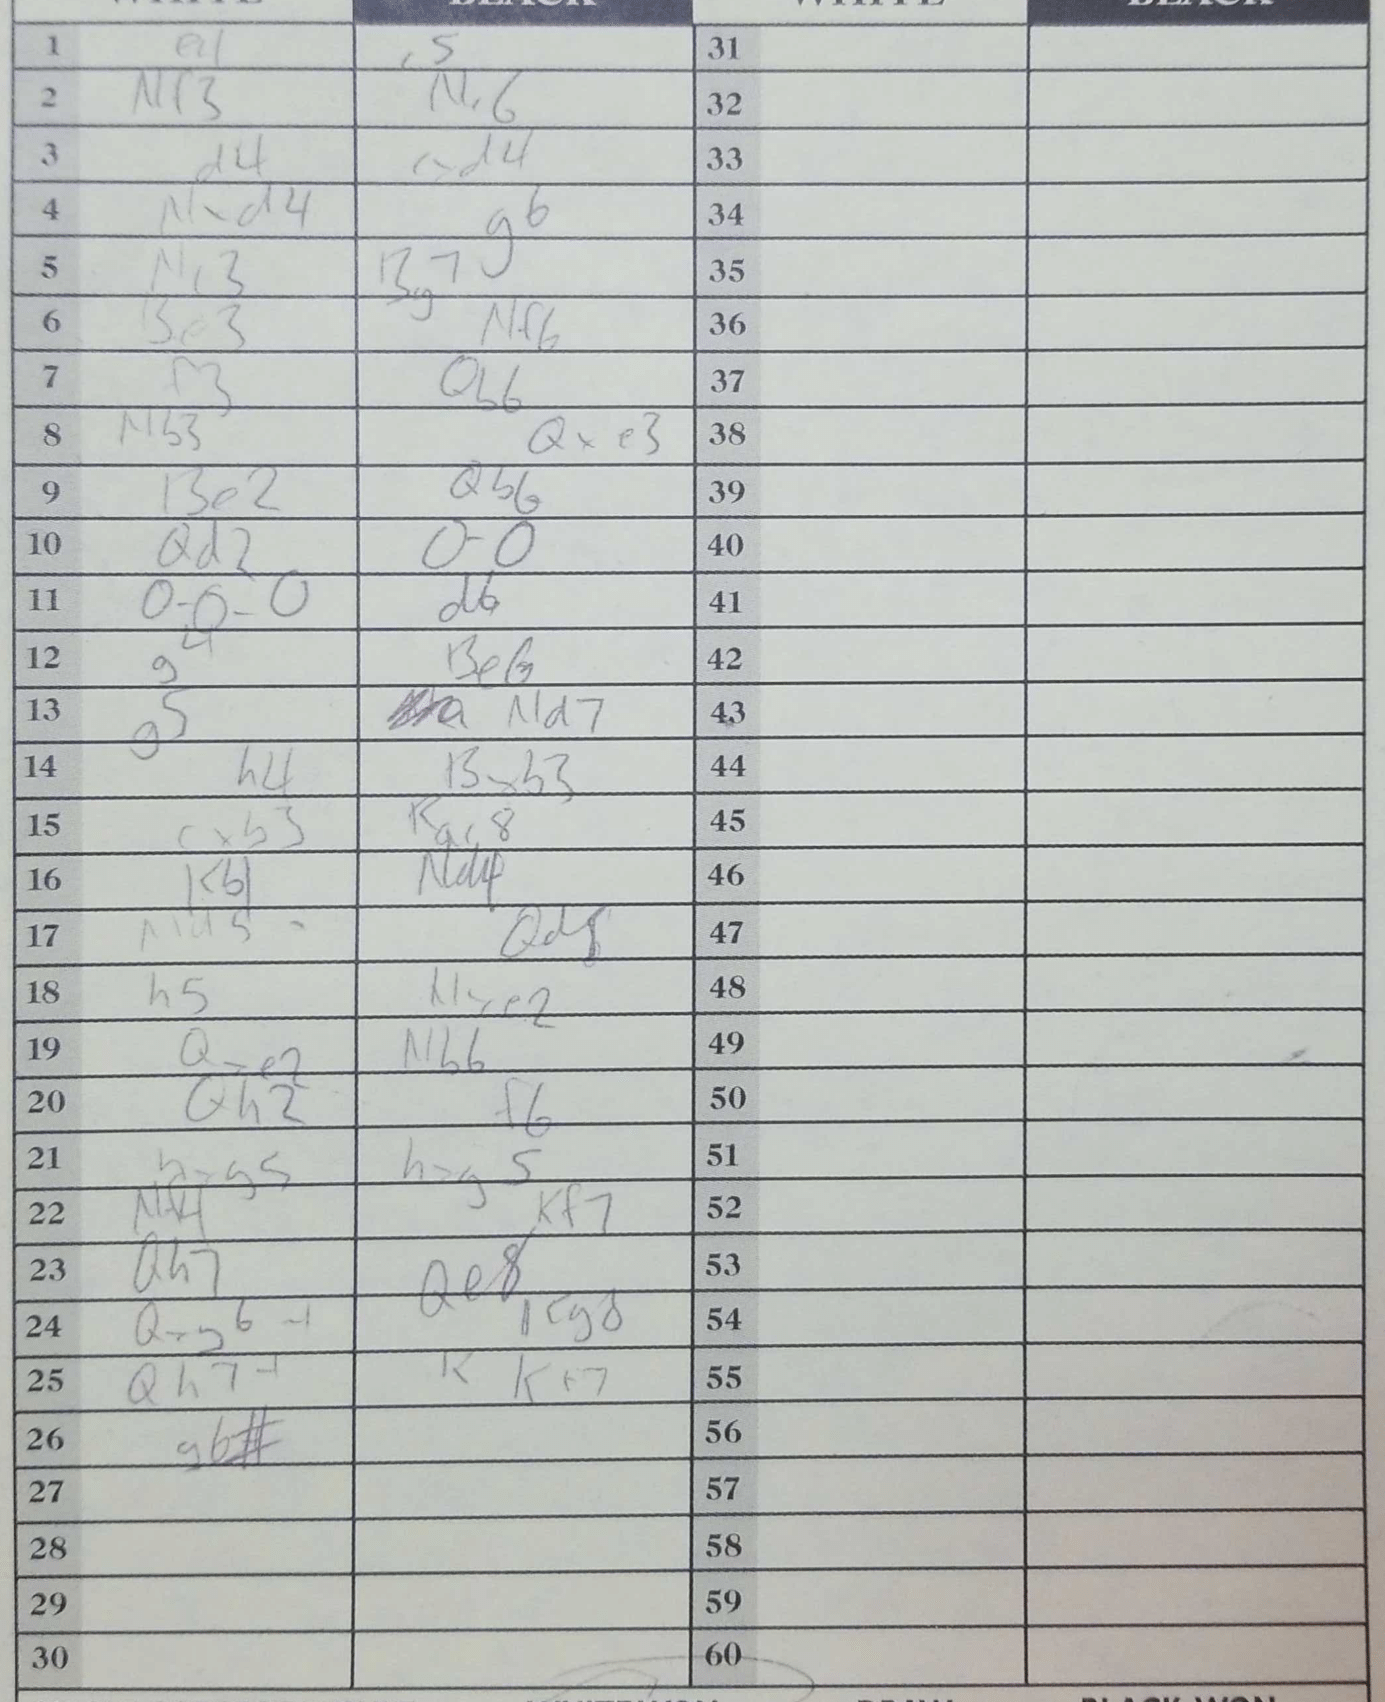 WHITE BLACK WHITE BLACK
1 e4 c5 31
2 Nf3 Nc6 32
3 d4 cxd4 33
4 Nxd4 g6 34
5 Nc3 Bg7 35
6 Be3 Nf6 36
7 f3 Qb6 37
8 Nb3 Qxe3 38
9 Be2 Qb6 39
10 Qd2 O-O 40
11 O-O-O d6 41
12 g4 Be6 42
13 g5 a Nd7 43
14 h4 Bxb3 44
15 cxb3 Rac8 45
16 Kb1 Nd4 46
17 Nd5 Qd8 47
18 h5 Nxe2 48
19 Qxe2 Nb6 49
20 Qh2 f6 50
21 hxg5 hxg5 51
22 Nf4 Kf7 52
23 Qh7 Qe8 53
24 Qxg6+ Kg8 54
25 Qh7+ K Kf7 55
26 g6# 56
27 57
28 58
29 59
30 60
WHITE WON DRAW BLACK WON